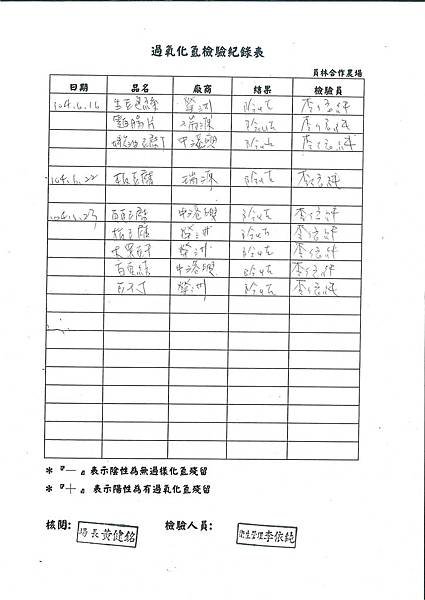 過氧化氫檢驗紀錄表
員林合作農場
日期 品名 廠商 結果 檢驗員
104.6.16 榮洲 陰性 李依純
雞腸片 瑞源 陰性 李依純
中港興 陰性 李依純
104.6.22 板豆腐 瑞源 陰性 李依純
104.6.23 百頁豆腐 中港興 陰性 李依純
板豆腐 榮洲 陰性 李依純
大黑豆干 榮洲 陰性 李依純
百頁結 中港興 陰性 李依純
豆干丁 榮洲 陰性 李依純
* 『－』表示陰性為無過樣化氫殘留
* 『＋』表示陽性為有過氧化氫殘留
核閱: 場長黃健銘 檢驗人員: 衛生管理李依純